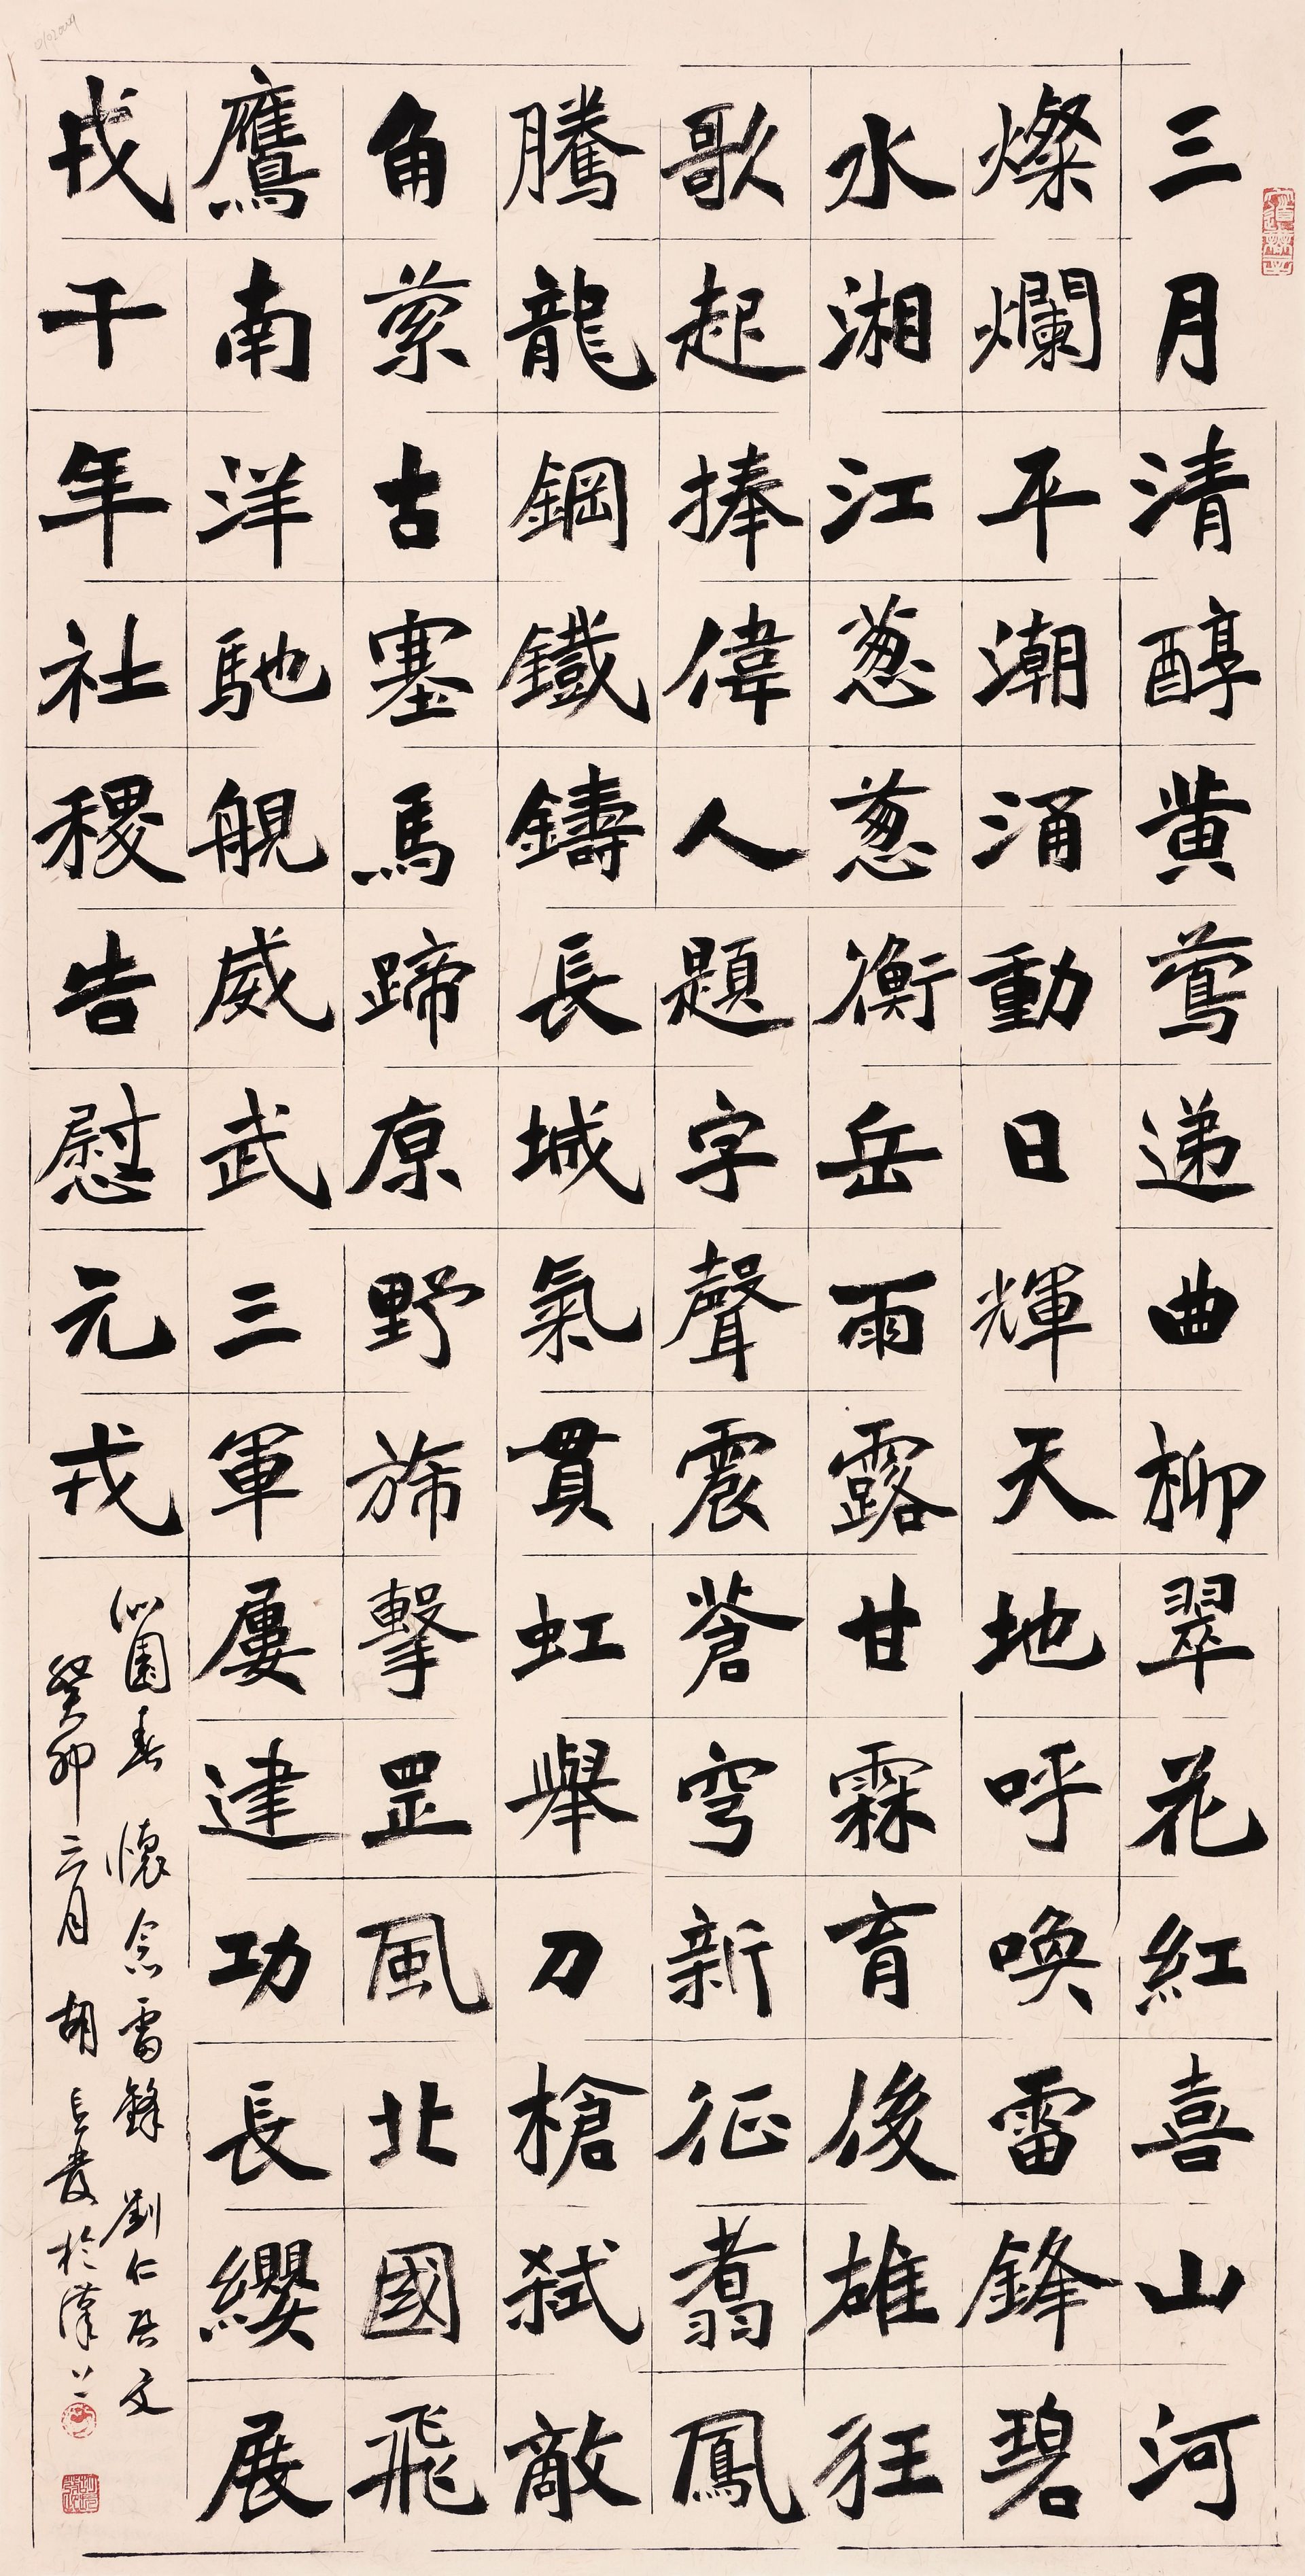 三月清醇黄莺递曲柳翠花紅喜山河
燦爛平潮涌動日輝天地呼唤雷鋒碧
水湘江葱葱衡岳雨露甘霖育後雄狂
歌起捧偉人題字聲震蒼穹新征翥鳳
騰龍鋼鐵鑄長城氣貫虹舉刀槍弑敵
角萦古塞馬蹄原野旆擊罡風北國飛
鷹南洋馳艦威武三軍屢建功長纓展
戎千年社稷告慰元戎
沁園春 懷念雷鋒 劉仁啟文
癸卯二月 胡長發於漢上